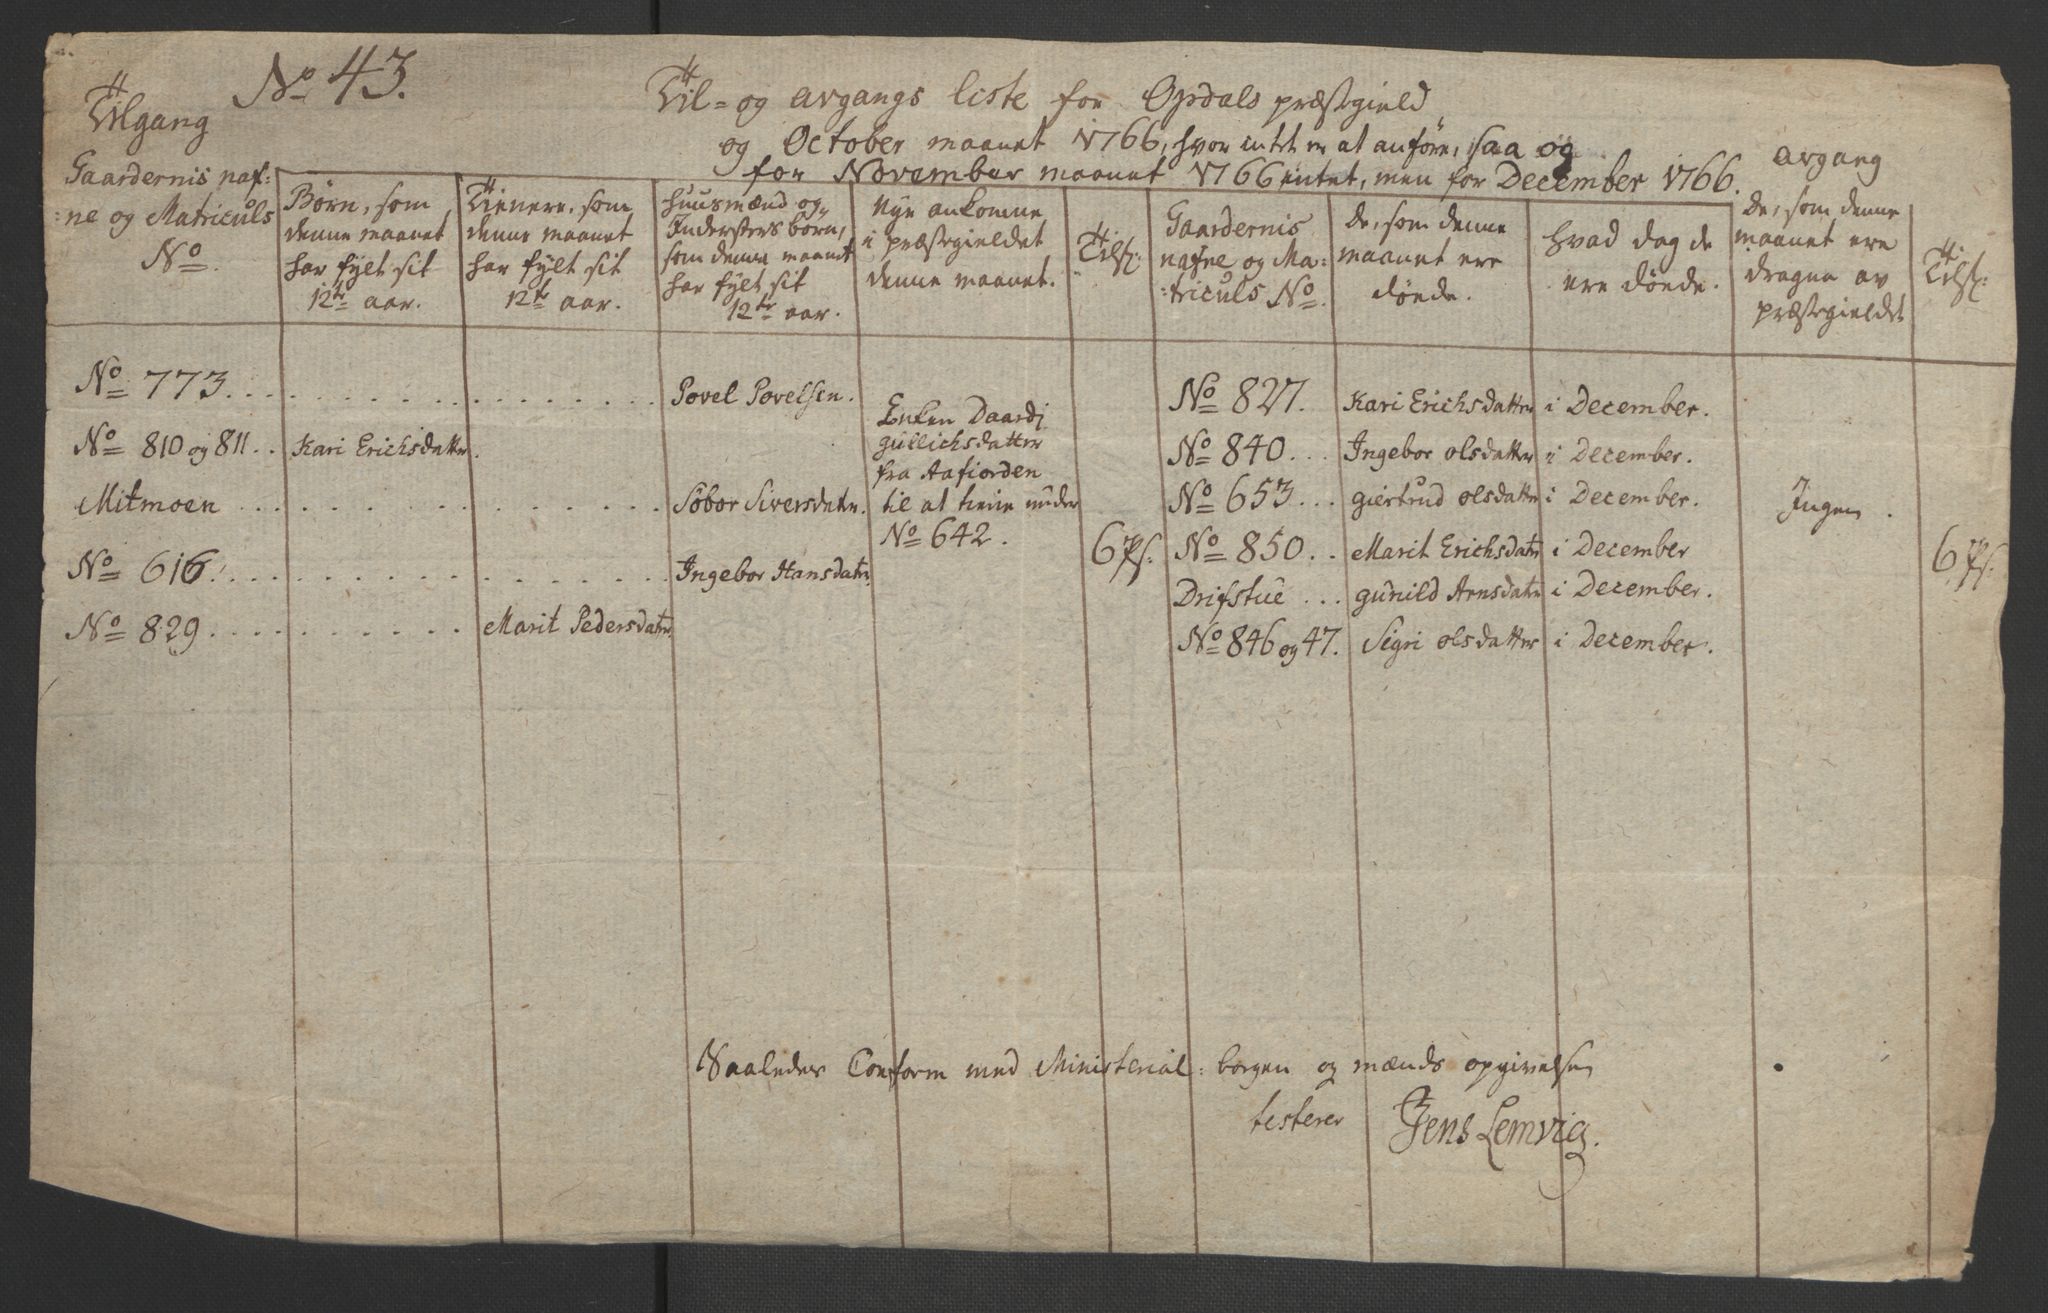 No 43.
Til- og avgangs liste for Opdals præstegield
og October maanet 1766, hvor intet er at anføre, saa og
for November maanet 1766 intet, men for December 1766.
Tilgang
Gaardernis naf-
ne og Matriculs
No
Børn, som
denne maanet
har fylt sit
12te aar.
Tienere, som
denne maanet
har fylt sit
12te aar.
Huusmænd og
Indersters børn,
som denne maanet
har fylt sit
12te aar.
Nye ankomne
i præstegieldet
denne maanet.
Avgang
Gaardernis
nafne og Ma-
triculs No
De, som denne
maanet ere
dönde.
Hvad dag de
ere dönde.
De, som denne
maanet ere
dragne av
præstegieldet
No 773 . . . Povel Povelsen.
No 810 og 811 . . Kari Erichsdatter.
Mitmoen . . . Söbor Siversdater.
No 616 . . . Ingebor Hansdater.
No 829 . . . Marit Pedersdater
Enken
gullichsdatter
fra Aafiorden
til at tiene under
No 642.
6 Ps.
No 827. Kari Erichsdatter i December.
No 840 . . . Ingebor olsdatter i December.
No 653 . . . giertrud olsdatter i December.
No 850 . . Marit Erichsdatr i December
Drifstue . . . gunild Arnsdatr i December.
No 846 og 47. Sigri olsdatter i December.
Ingen.
6 Ps.
Saaledes Conform med Ministerial-bogen og mænds opgivelse
testerer Jens Lemvig.